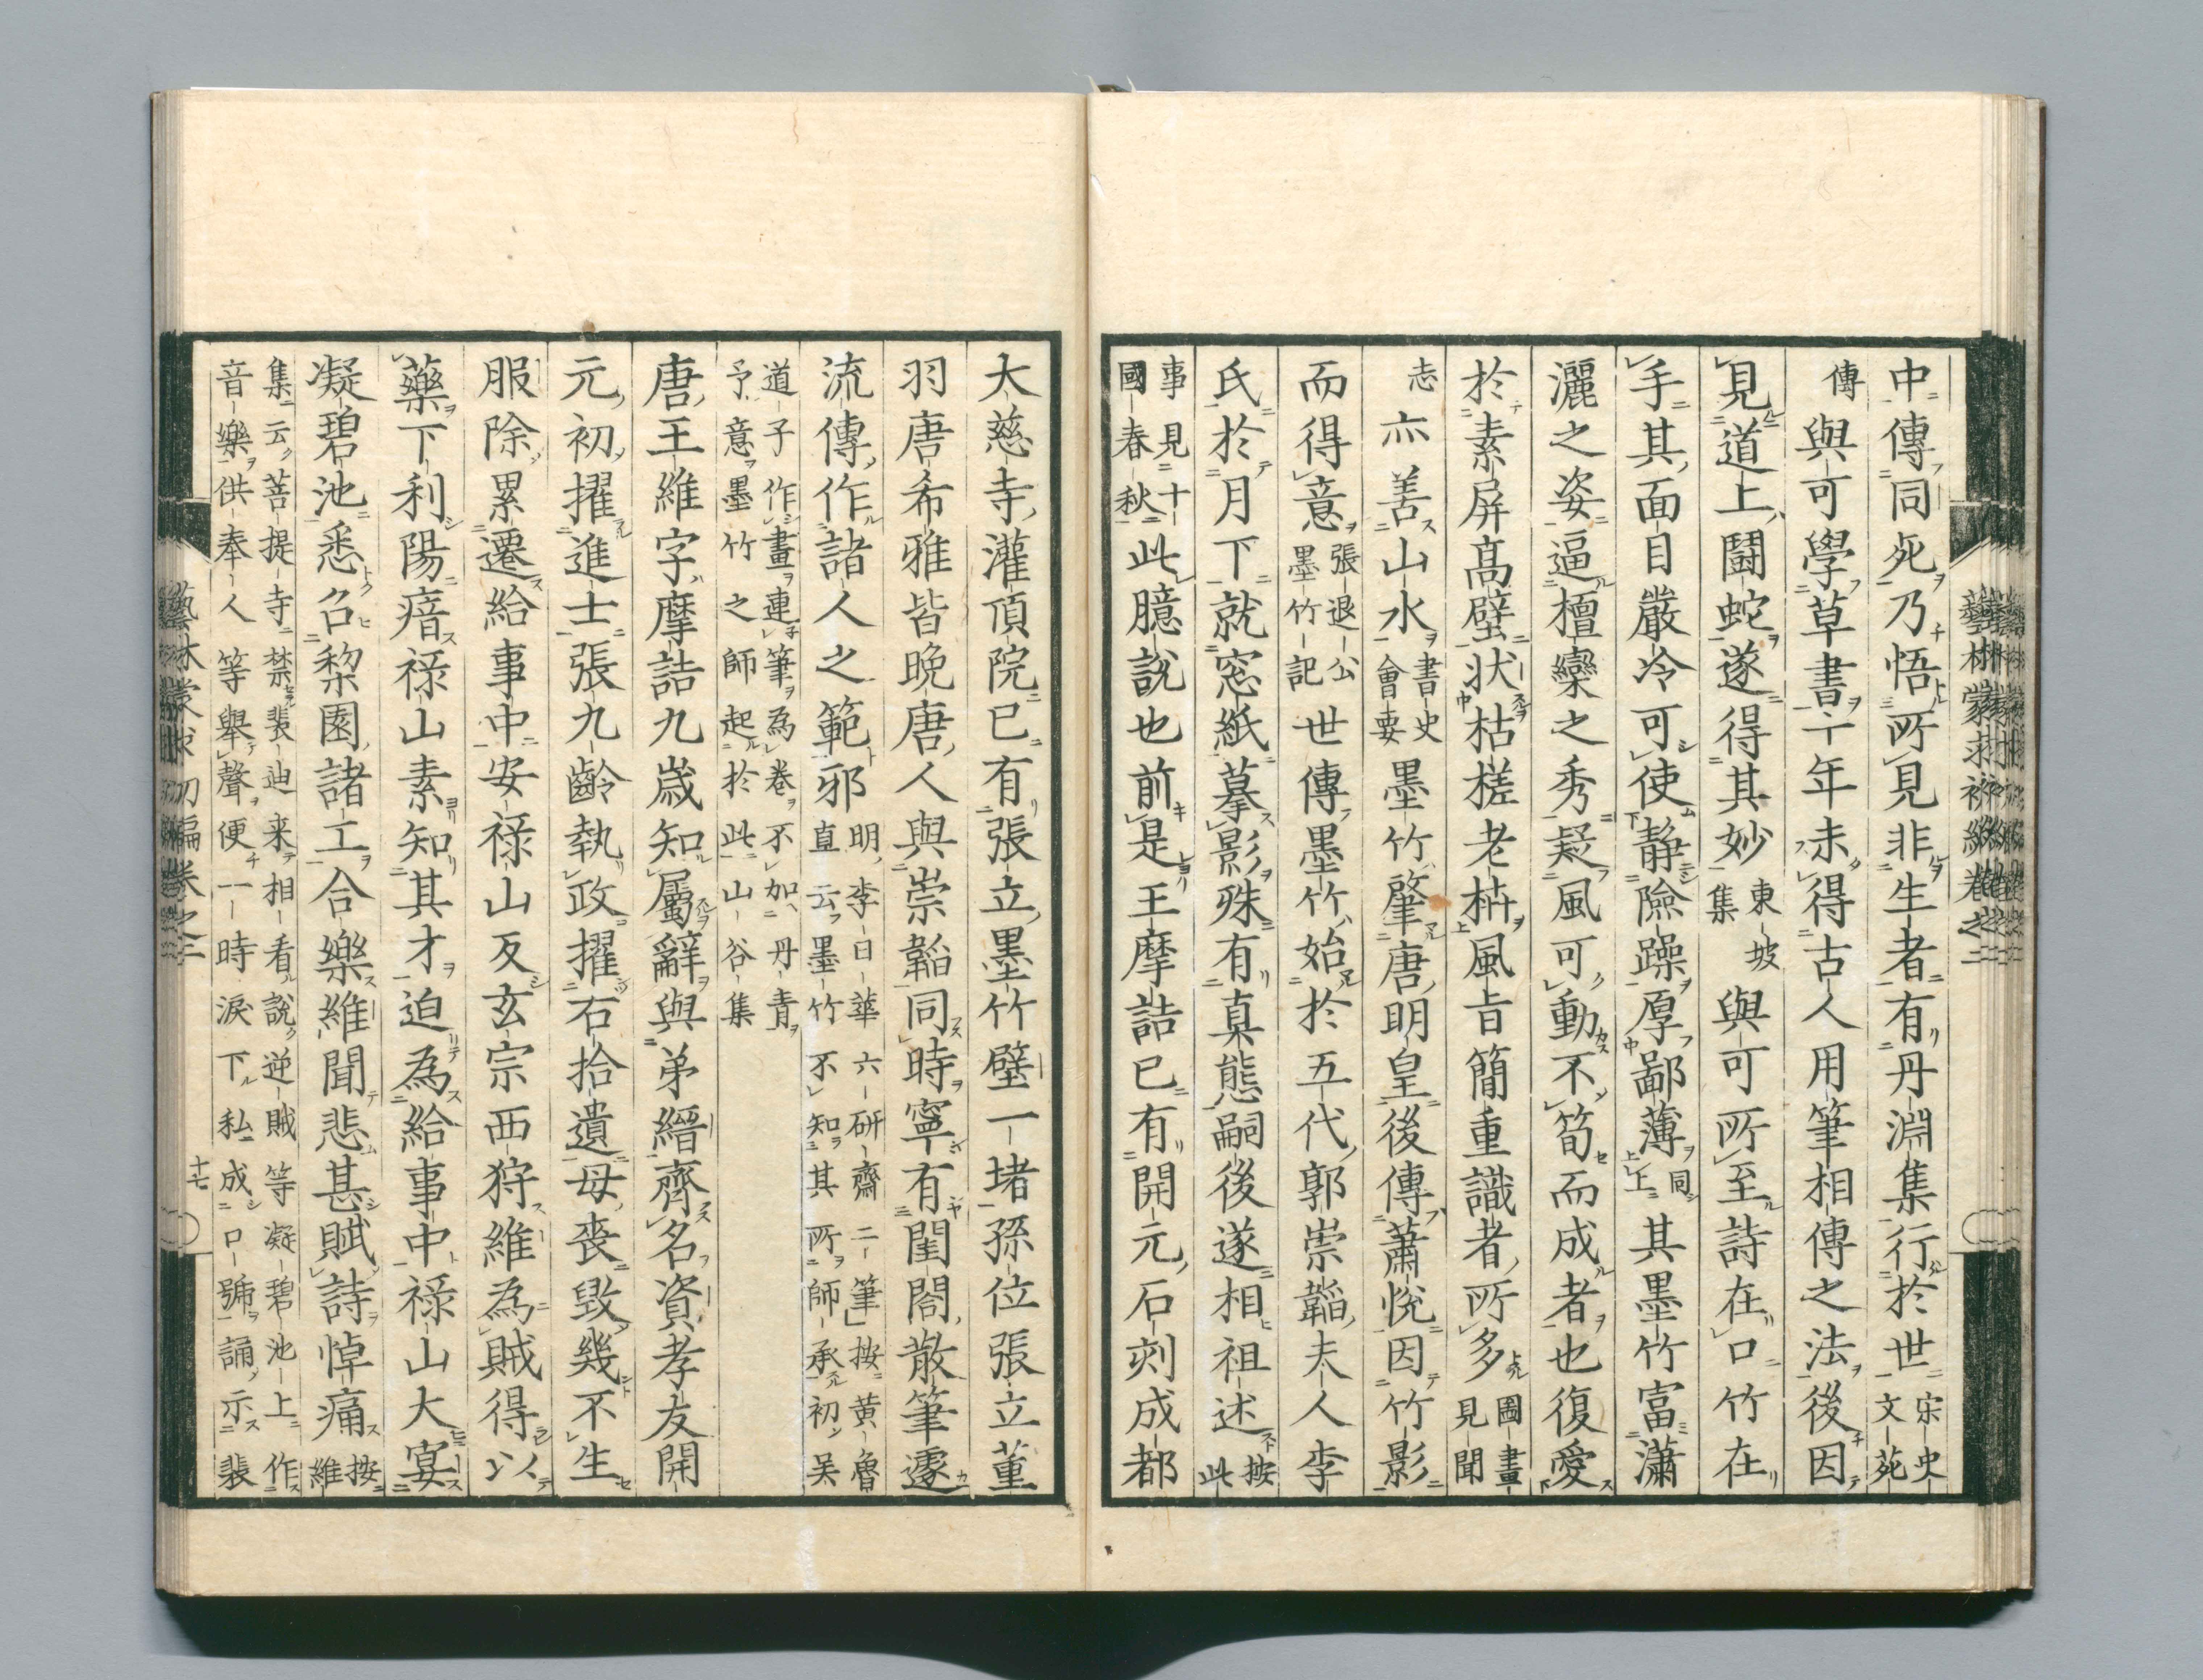 中傳同死乃悟所見非生者有丹淵集行於世宋史文苑
傳與可學草書十年未得古人用筆相傳之法後因
見道上鬪蛇遂得其妙東坡集與可所至詩在口竹在
手其面目嚴冷可使静險躁厚鄙薄同上其墨竹富瀟
灑之姿逼檀欒之秀疑風可動不筍而成者也復愛
於素屏髙壁状枯槎老枿風旨簡重識者所多圖畫見聞
志亦善山水書史會要墨竹肇唐明皇後傳蕭悅因竹影
而得意張退公墨竹記世傳墨竹始於五代郭崇韜夫人李
氏於月下就窓紙摹影殊有真態嗣後遂相祖述按此
事見十國春秋此臆説也前是王摩詰已有開元石刻成都
大慈寺灌頂院已有張立墨竹壁一堵孫位張立董
羽唐希雅皆晩唐人與崇韜同時寧有閨閤散筆遽
流傳作諸人之範邪明李日華六研齋二筆按黄魯直云墨竹不知其所師承初吴
道子作畫連筆為卷不加丹青予意墨竹之師起於此山谷集
唐王維字摩詰九歳知屬辭與弟縉齊名資孝友開
元初擢進士張九齡執政擢右拾遺母丧毀幾不生
服除累遷給事中安禄山反玄宗西狩維為賊得以
藥下利陽瘖禄山素知其才迫為給事中禄山大宴
凝碧池悉召梨園諸工合樂維聞悲甚賦詩悼痛按維
集云菩提寺禁裴迪来相看説逆賊等凝碧池上作音樂供奉人等舉聲便一時淚下私成口號誦示裴
藝林蒙求初編卷之二
十七